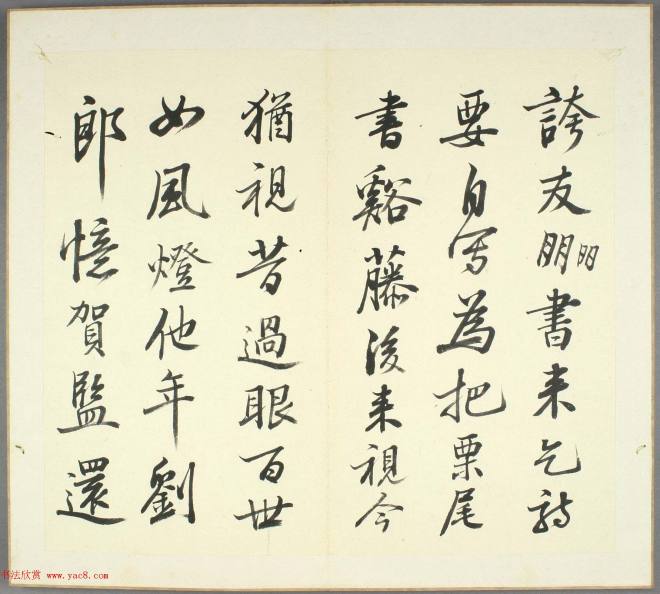 誇友朋朋書来乞詩
要自写為把栗尾
書谿藤後来視今
猶視昔過眼百世
如風燈他年劉
郎憶賀監還
书法欣赏 www.yac8.com